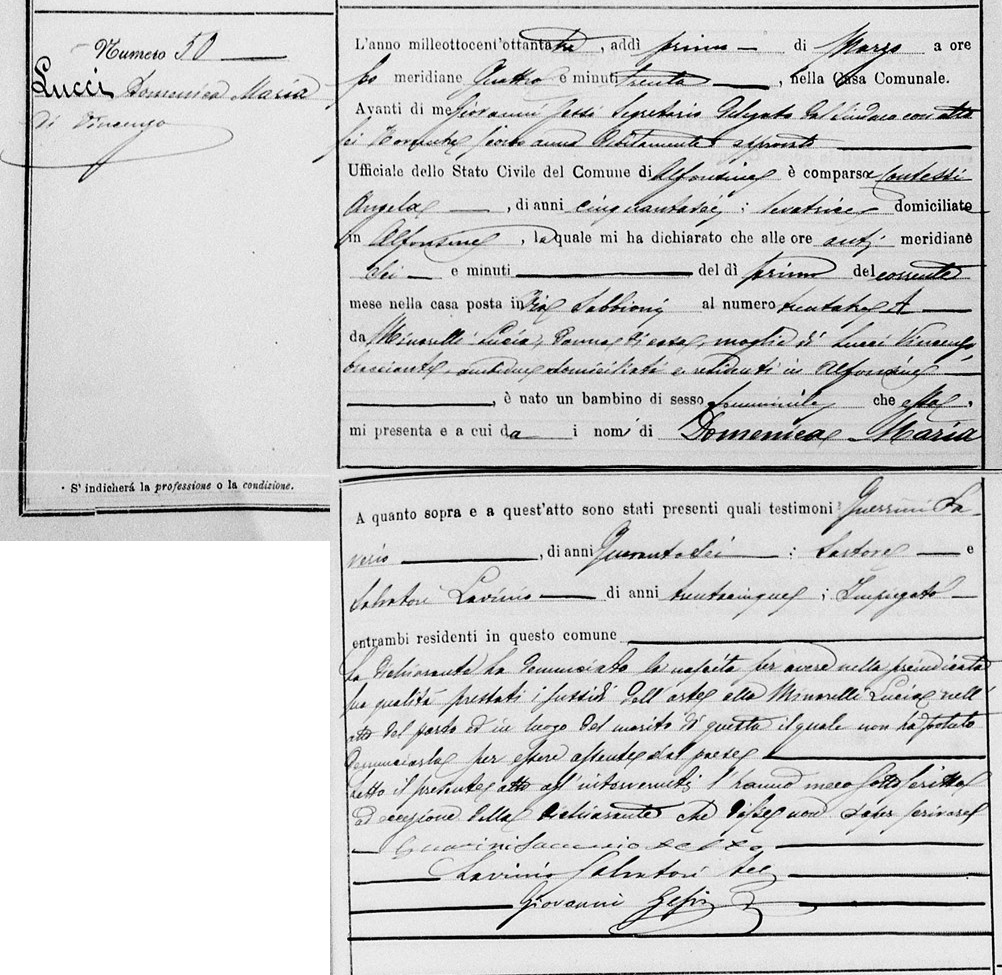 Numero 50
Lucci Domenica Maria
di Vincenzo
S' indicherá la professione o la condizione.
L'anno milleottocent'ottantatre, addì primo di Marzo a ore
po meridiane Quattro e minuti trenta, nella Casa Comunale.
Avanti di me Giovanni Gessi Segretario delegato dal Sindaco con atto
sei Novembre scorso anno debitamente approvato
Ufficiale dello Stato Civile del Comune di Alfonsine è comparsa Contessi
Angela, di anni cinquantasei; levatrice domiciliata
in Alfonsine, la quale mi ha dichiarato che alle ore anti meridiane
Sei e minuti del dì primo del corrente
mese nella casa posta in Via Sabbioni al numero trentatre A
da Minarelli Lucia, donna di casa, moglie di Lucci Vincenzo
bracciante, ambidue domiciliati e residenti in Alfonsine
, è nato un bambino di sesso femminile che essa
mi presenta e a cui da i nomi di Domenica Maria
A quanto sopra e a quest'atto sono stati presenti quali testimoni Guerrini Sa-
verio, di anni Quarantasei; Sartore e
Salvatori Lavinio di anni trentacinque; Impiegato
entrambi residenti in questo comune
La dichiarante ha denunciato la nascita per avere nella preindicata
sua qualità prestati i sussidi dell'arte alla Minarelli Lucia nell'
atto del parto ed in luogo del marito di questa il quale non ha potuto
denunciarla per essere assente dal paese
Letto il presente atto agl'intervenuti l'hanno meco sottoscritto
ad eccezione della dichiarante che disse non saper scrivere
Guerrini Saverio
Lavinio Salvatori
Giovanni Gessi